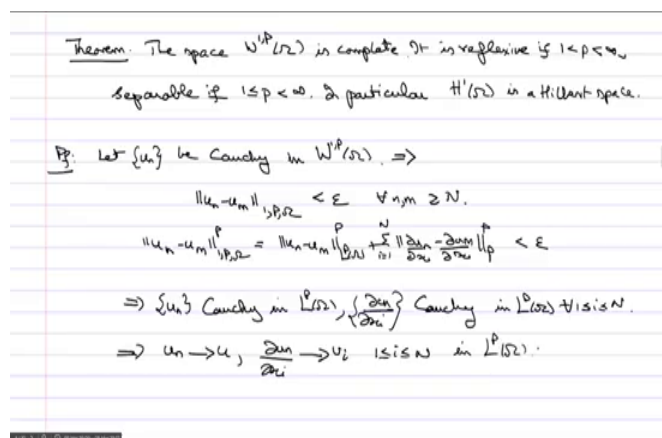 Theorem. The space W^{1,p}(Ω) is complete. It is reflexive if 1<p<∞,
separable if 1≤p<∞. In particular H^1(Ω) is a Hilbert space.
Pf: Let {u_n} be Cauchy in W^{1,p}(Ω). ⇒
||u_n-u_m||_{1,p,Ω} < ε ∀ n,m ≥ N.
||u_n-u_m||^p_{1,p,Ω} = ||u_n-u_m||^p_{0,p,Ω} + Σ_{i=1}^N ||∂u_n/∂x_i - ∂u_m/∂x_i||^p_p < ε
⇒ {u_n} Cauchy in L^p(Ω), {∂u_n/∂x_i} Cauchy in L^p(Ω) ∀ 1≤i≤N.
⇒ u_n→u, ∂u_n/∂x_i → v_i 1≤i≤N in L^p(Ω).